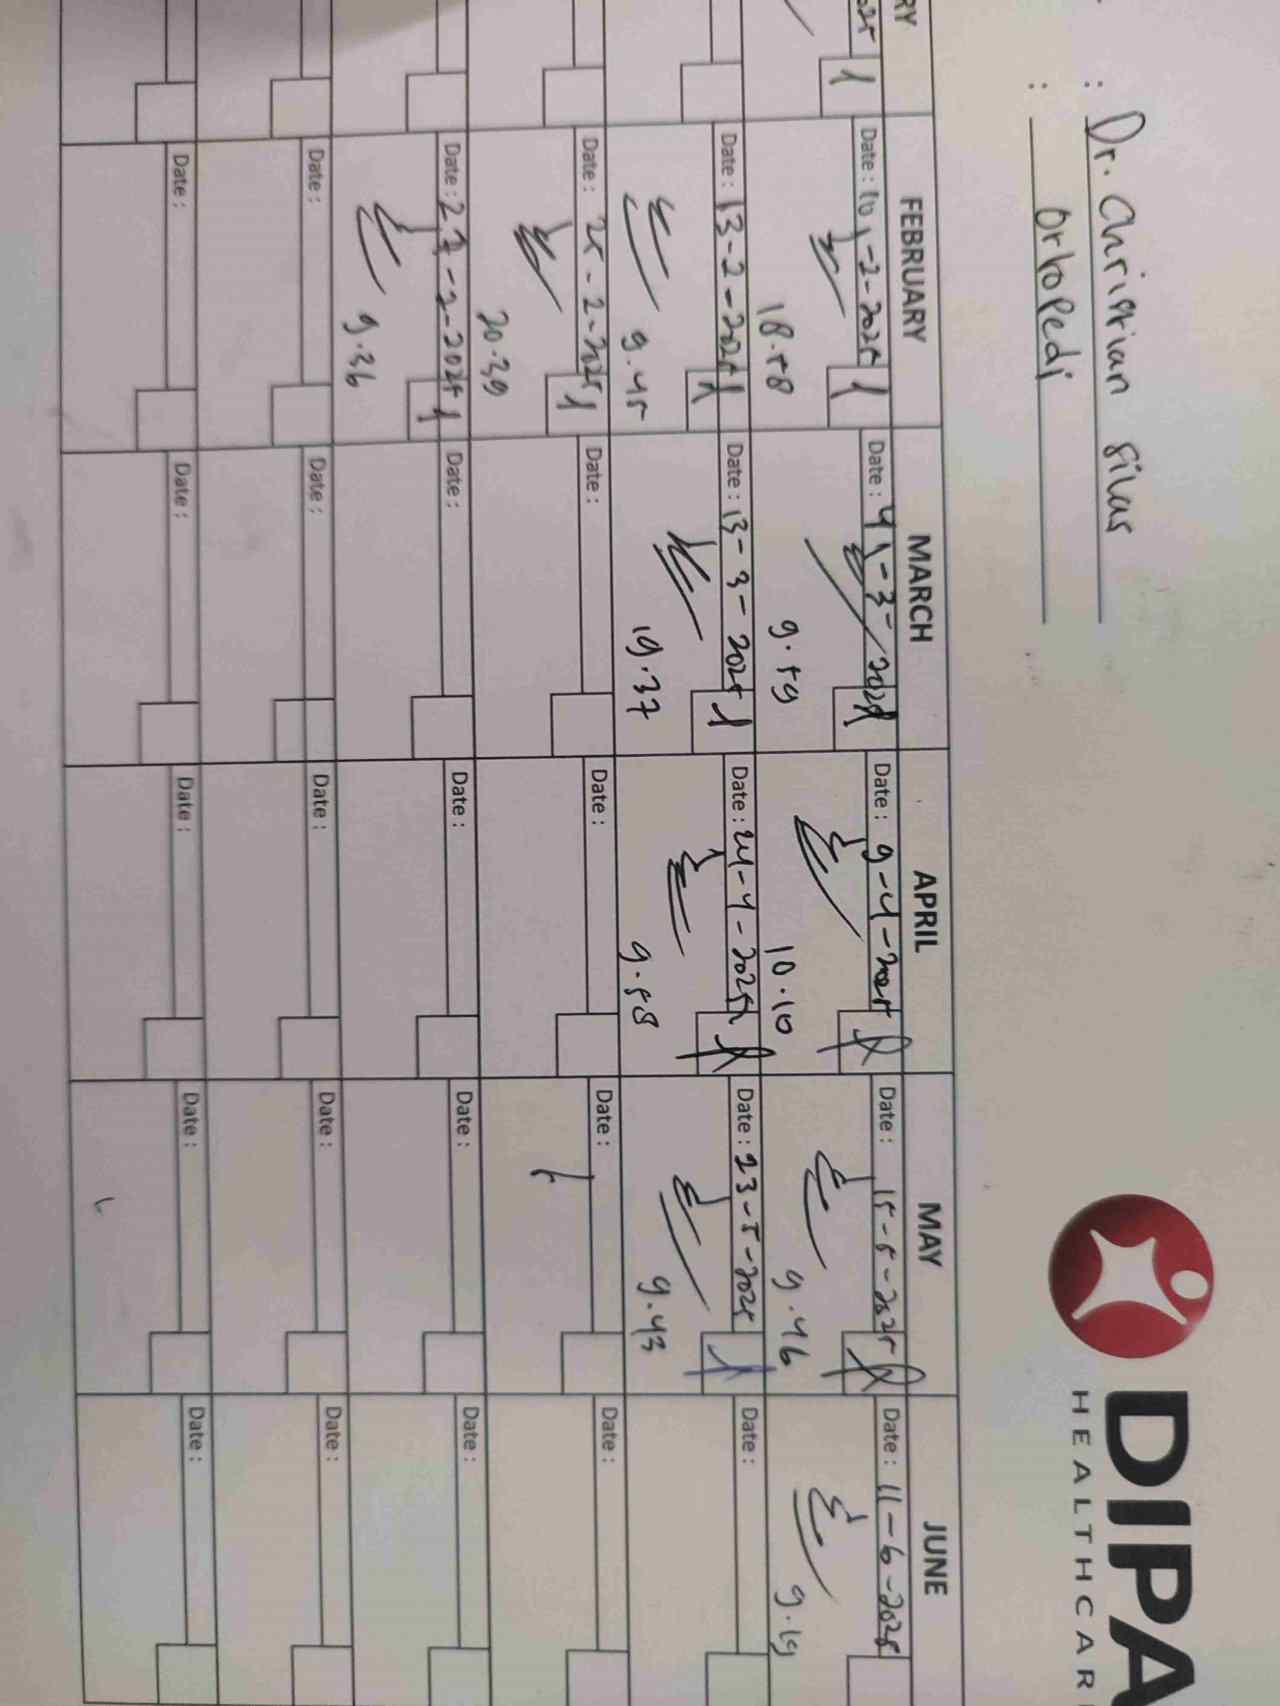 DIPA
HEALTHCAR
: Dr. Christian Silas
: Ortopedi
RY FEBRUARY MARCH APRIL MAY JUNE
1 Date : 10-2-2025 1 Date : 4-3-2025 1 Date : 9-4-2025 Date : 15-5-2025 Date : 11-6-2025
18.58 9.59 10.10 9.46 9.19
Date : 13-2-2025 1 Date : 13-3-2025 1 Date : 24-4-2025 Date : 23-5-2025 Date :
9.45 19.37 9.58 9.43
Date : 25-2-2025 1 Date : Date : Date : Date :
20.39
Date : 27-2-2025 1 Date : Date : Date : Date :
9.36
Date : Date : Date : Date : Date :
Date : Date : Date : Date : Date :